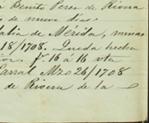 Benito Perez de Rivera
de nueve dias
de Mérida, minas
18/1708. Queda hecha
fs 16 á 16 vta
Parral Mzo 26/1708
de Rivera de la